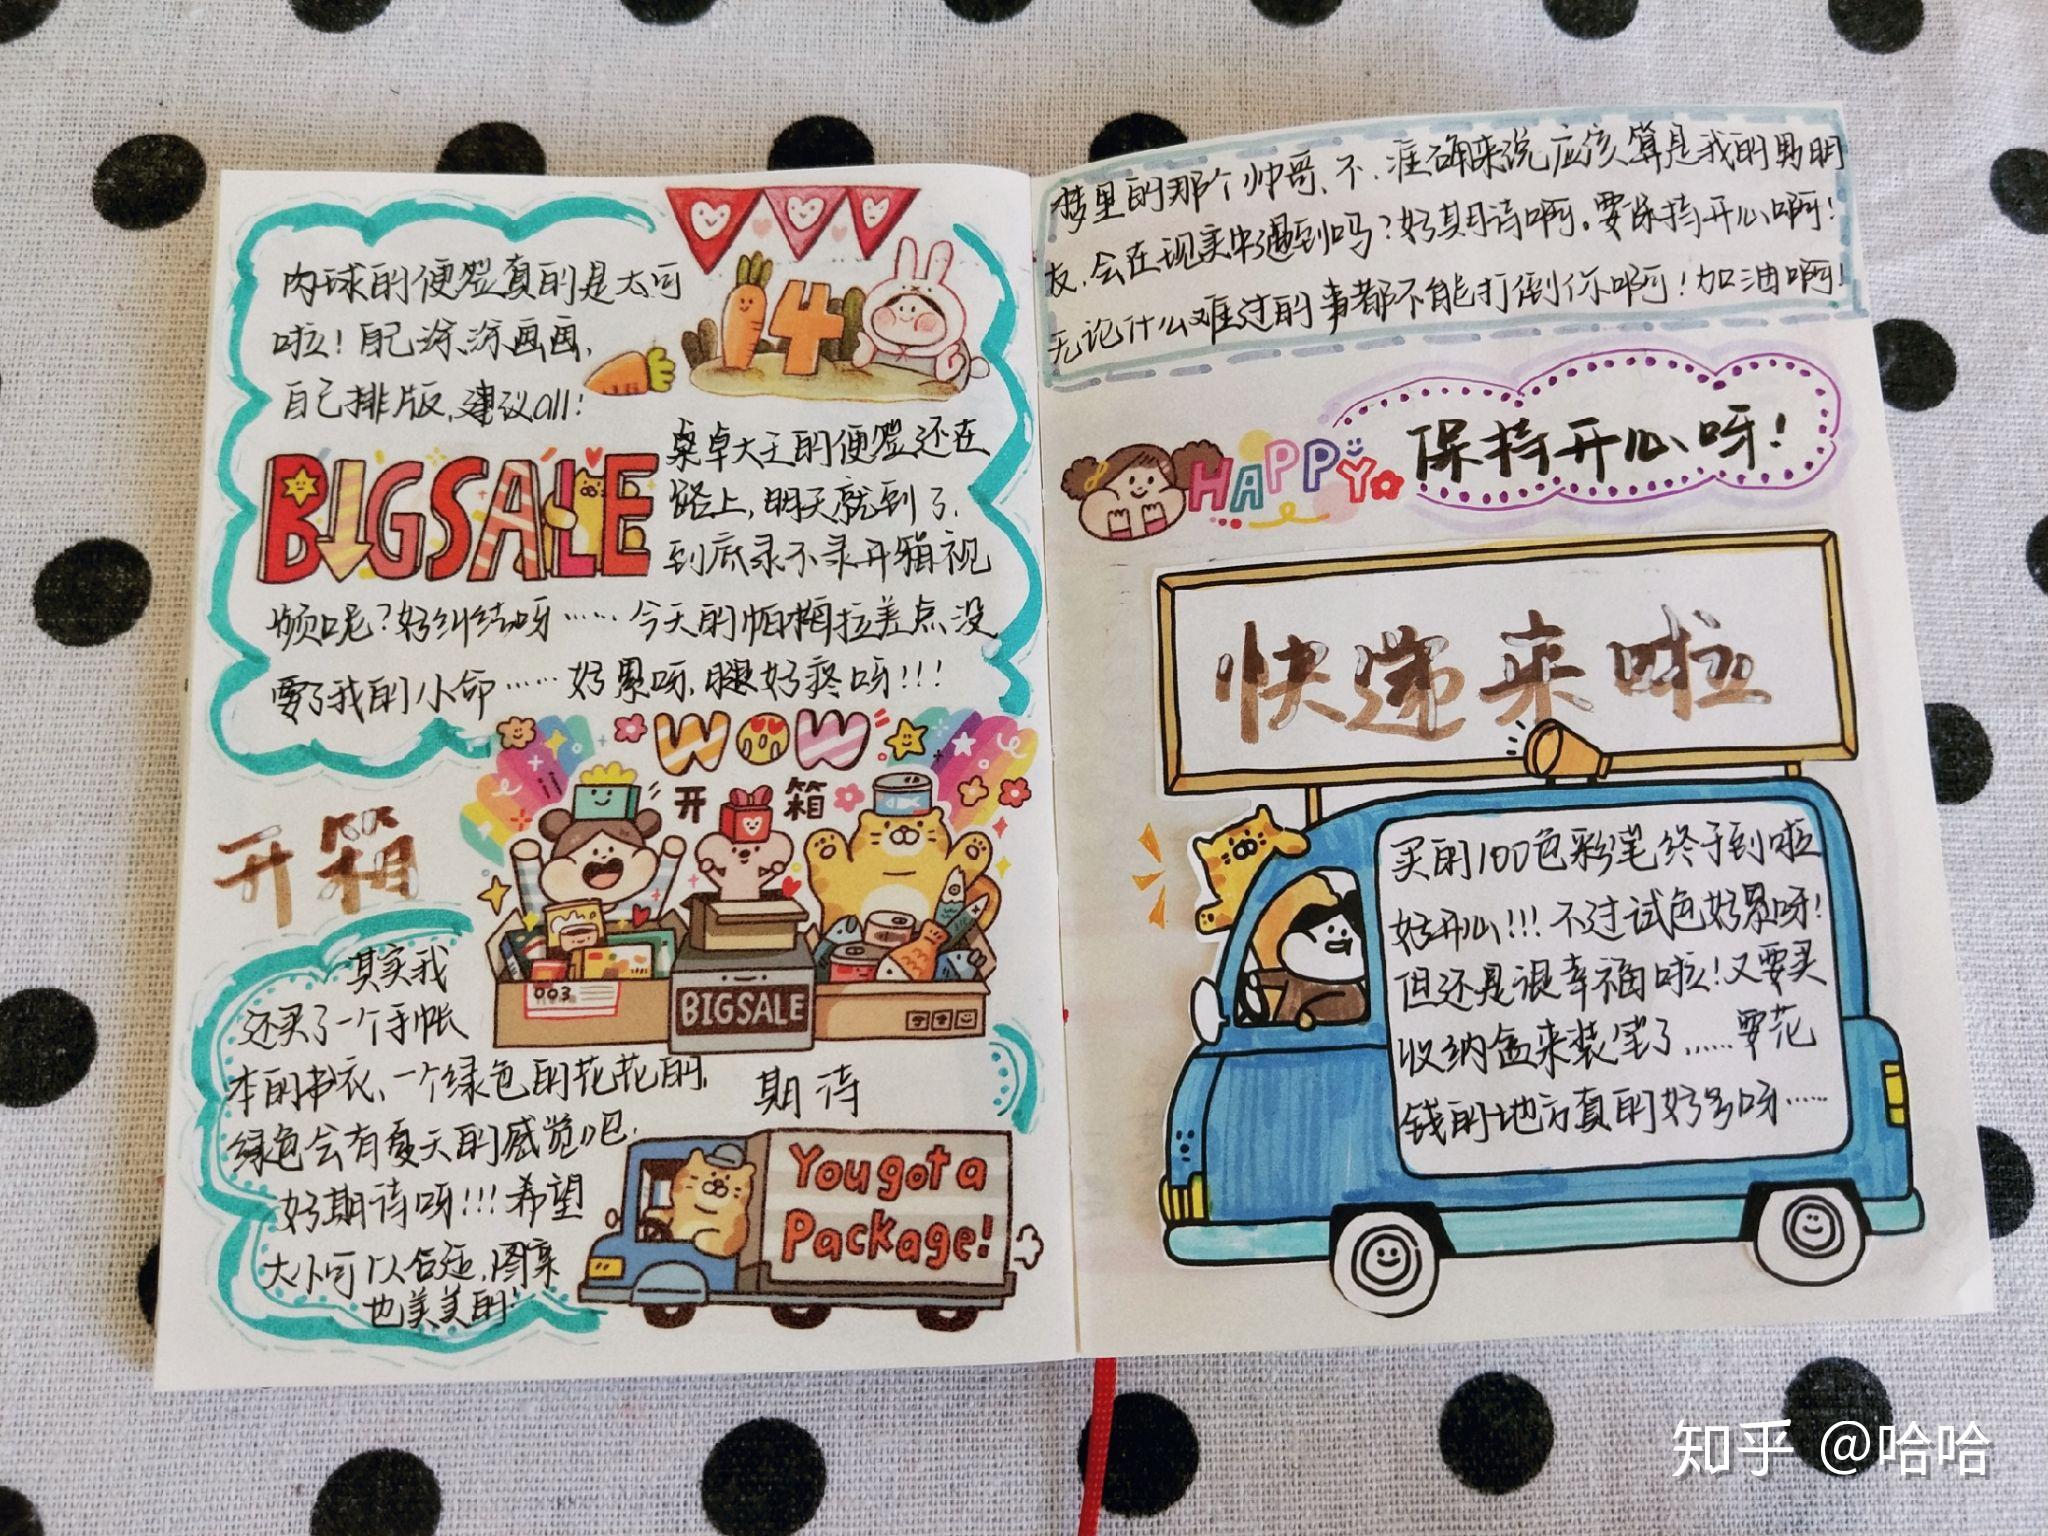 肉球的便签真的是太可
啦！自己涂涂画画，
自己排版，建议all！
14
BIGSALE
桌卓大王的便签还在
路上，明天就到了，
到底录不录开箱视
频呢？好纠结呀……今天的帕梅拉差点没
要了我的小命……好累呀，腿好疼呀!!!
WOW
开箱
开箱
003
BIGSALE
其实我
还买了一个手帐
本的书衣，一个绿色的花花的，
绿色会有夏天的感觉吧，
好期待呀!!!希望
大小可以合适，图案
也美美的！
期待
You got a
Package!
梦里的那个帅哥、不、准确来说应该算是我的男朋
友，会在现实中遇到吗？好期待啊。要保持开心啊！
无论什么难过的事都不能打倒你啊！加油啊！
HAPPY
保持开心呀！
快递来啦
买的100色彩笔终于到啦
好开心!!!不过试色好累呀！
但还是很幸福啦！又要买
收纳盒来装笔了……要花
钱的地方真的好多呀……
知乎 @哈哈